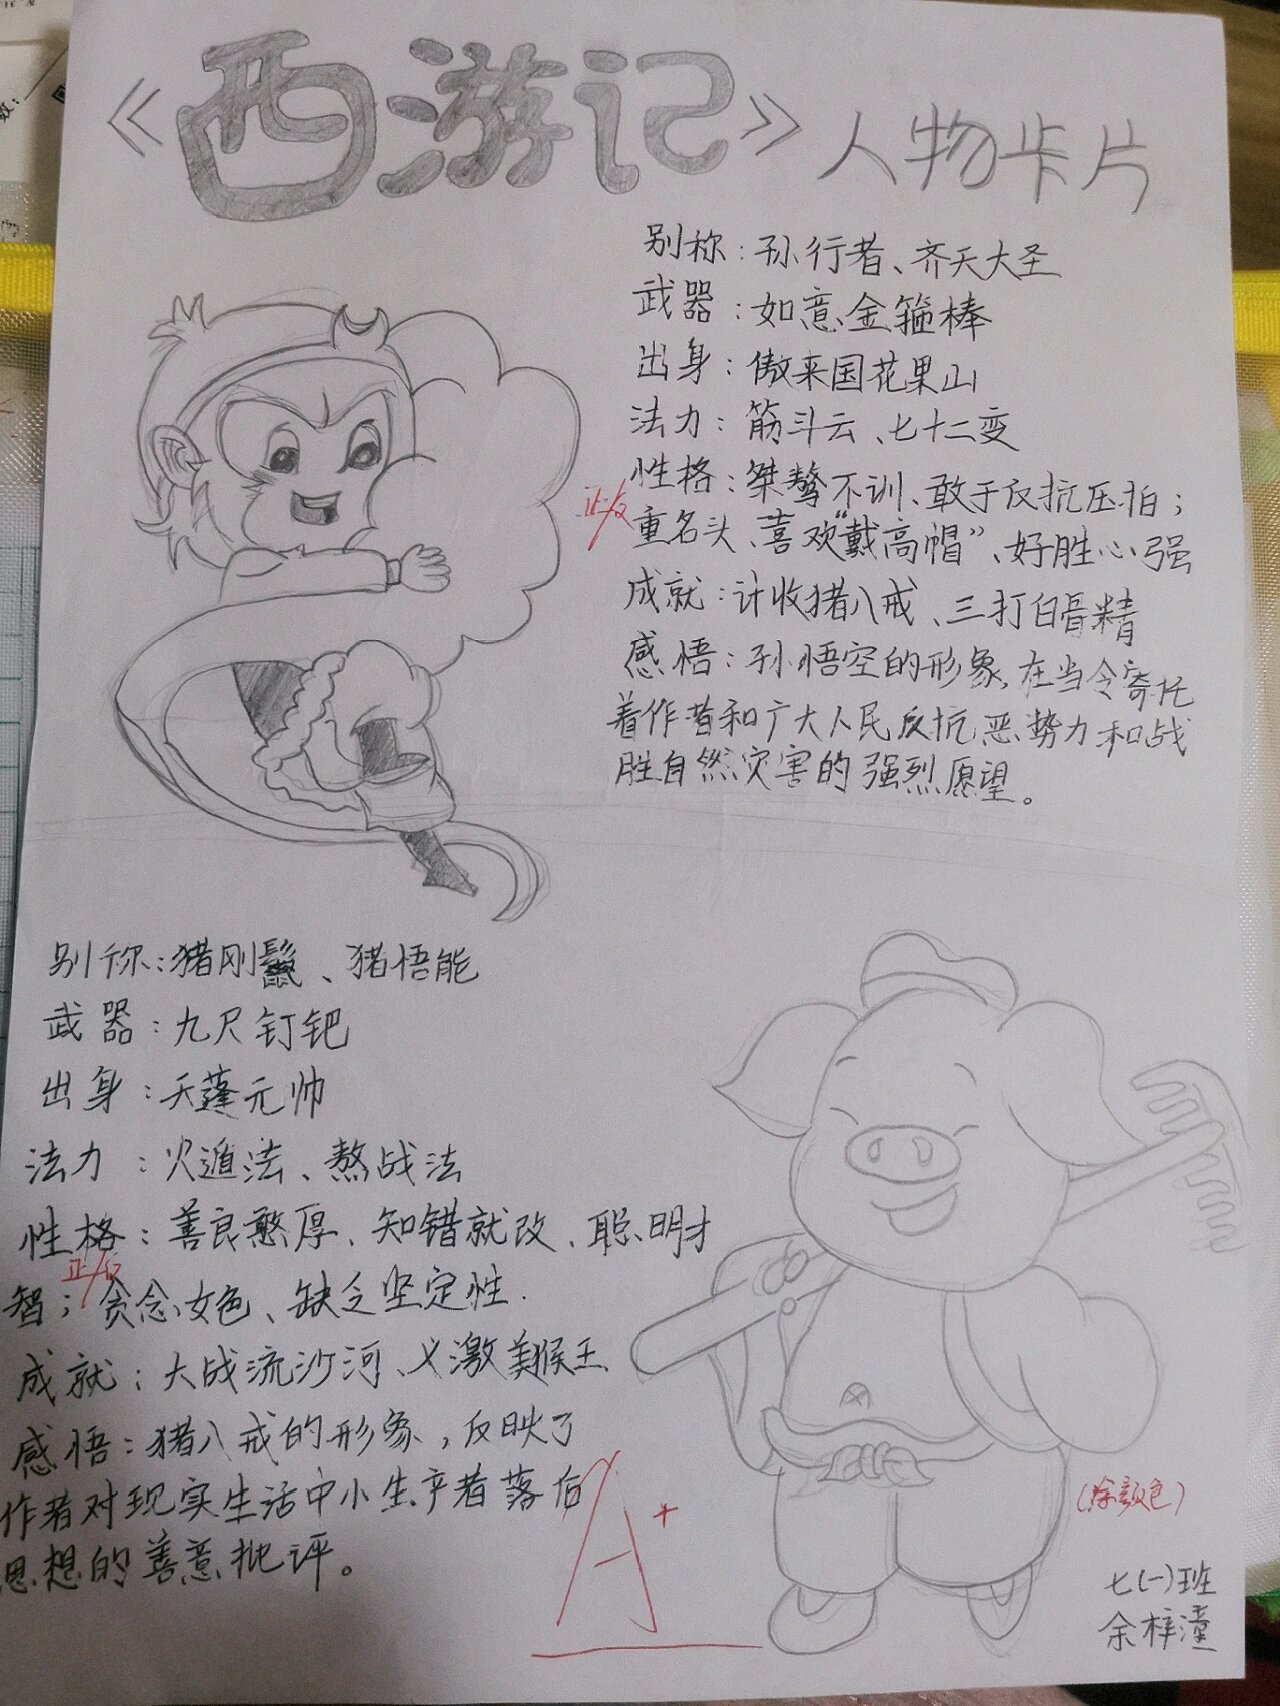 《西游记》人物卡片
别称：孙行者、齐天大圣
武器：如意金箍棒
出身：傲来国花果山
法力：筋斗云、七十二变
性格：桀骜不训、敢于反抗压怕；
正/反
重名头、喜欢“戴高帽”、好胜心强
成就：计收猪八戒、三打白骨精
感悟：孙悟空的形象，在当令寄托
着作者和广大人民反抗恶势力和战
胜自然灾害的强烈愿望。
别称：猪刚鬣、猪悟能
武器：九尺钉钯
出身：天蓬元帅
法力：火遁法、熬战法
性格：善良憨厚、知错就改、聪明才
正/反
智；贪念女色、缺乏坚定性.
成就：大战流沙河、义激美猴王
感悟：猪八戒的形象，反映了
作者对现实生活中小生产者落后
思想的善意批评。
A+
(涂颜色)
七(一)班
余梓潼